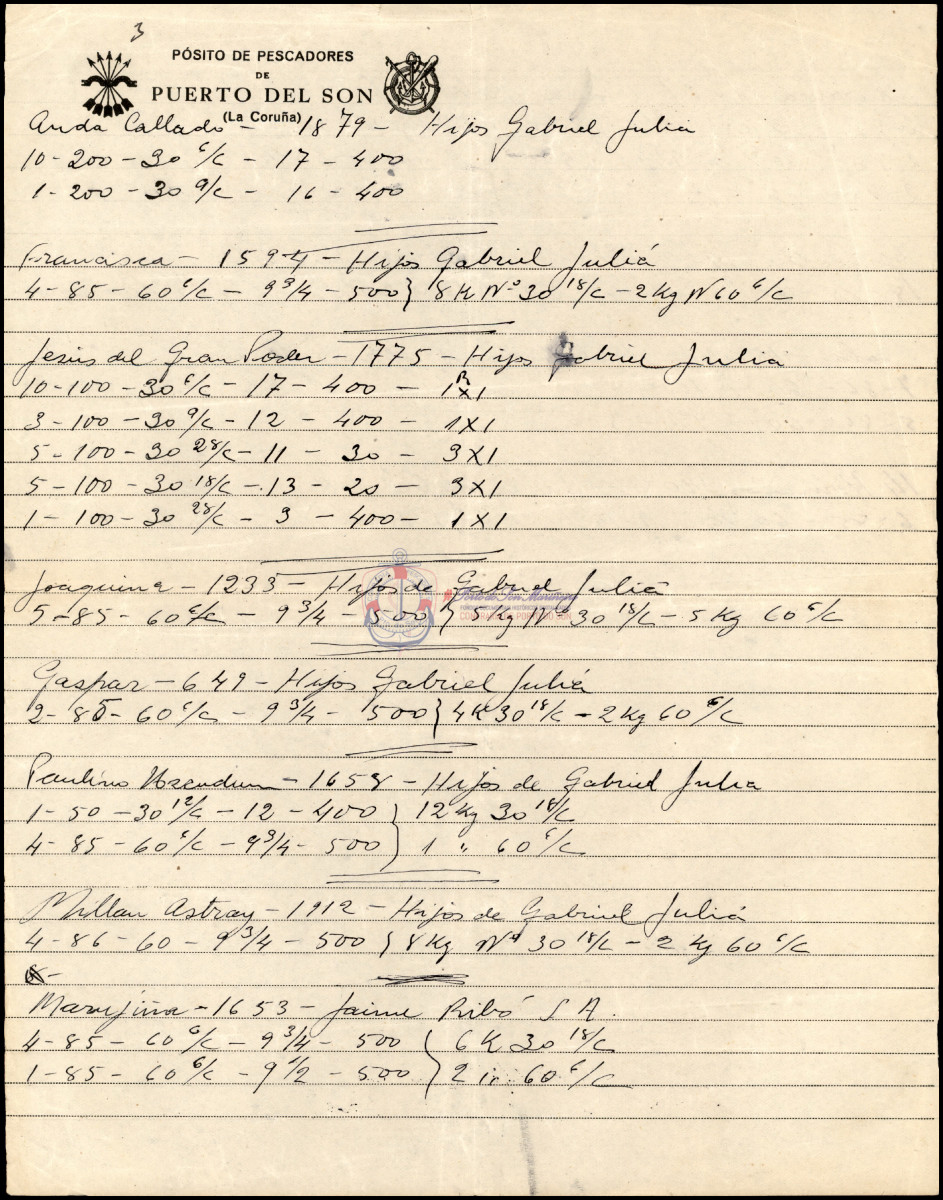 3
PÓSITO DE PESCADORES
DE
PUERTO DEL SON
(La Coruña)
Anda Callado - 1879 - Hijos Gabriel Julia
10-200-30 6/c - 17 - 400
1-200-30 9/c - 16 - 400
Francisca - 1594 - Hijos Gabriel Juliá
4-85-60 6/c - 9 3/4 - 500 } 8 K Nº 30 18/c - 2 Kg N 60 6/c
Jesús del Gran Poder - 1775 - Hijos Gabriel Julia
10-100-30 6/c - 17 - 400 - 1x1
3-100-30 9/c - 12 - 400 - 1x1
5-100-30 28/c - 11 - 30 - 3x1
5-100-30 18/c - 13 - 20 - 3x1
1-100-30 28/c - 3 - 400 - 1x1
Joaquina - 1233 - Hijos de Gabriel Juliá
5-85-60 6/c - 9 3/4 - 500 } 5 Kg Nº 30 18/c - 5 Kg 60 6/c
Gaspar - 649 - Hijos Gabriel Juliá
2-85-60 6/c - 9 3/4 - 500 } 4 K 30 18/c - 2 Kg 60 6/c
Paulino - 1658 - Hijos de Gabriel Julia
1-50-30 12/c - 12 - 400 } 12 Kg 30 18/c
4-85-60 6/c - 9 3/4 - 500 } 1 " 60 6/c
Millan Astray - 1912 - Hijos de Gabriel Juliá
4-86-60 - 9 3/4 - 500 } 8 Kg Nº 30 18/c - 2 Kg 60 6/c
Marujiña - 1653 - Jaime Ribó S A.
4-85-60 6/c - 9 3/4 - 500 { 6 K 30 18/c
1-85-60 6/c - 9 1/2 - 500 } 2 " 60 6/c